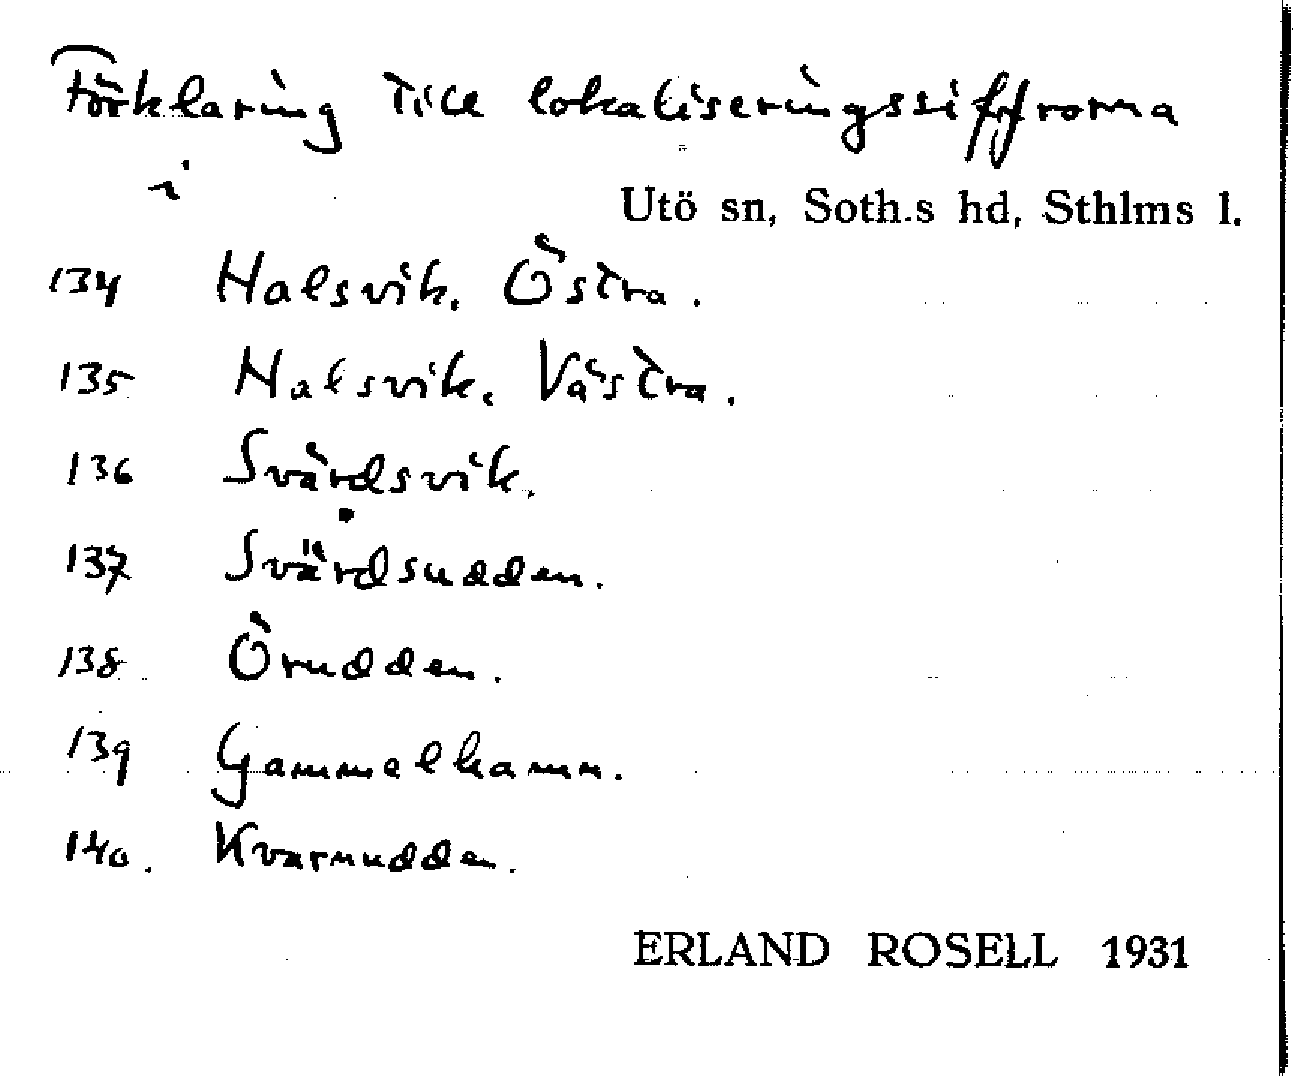 Förklaring till lokaliseringssiffrorna
i
Utö sn, Soth.s hd, Sthlms l.
134 Halsvik, Östra.
135 Halsvik, Västra.
136 Svärdsvik.
137 Svärdsudden.
138 Örudden.
139 Gammelhamn.
140. Kvarnudden.
ERLAND ROSELL 1931